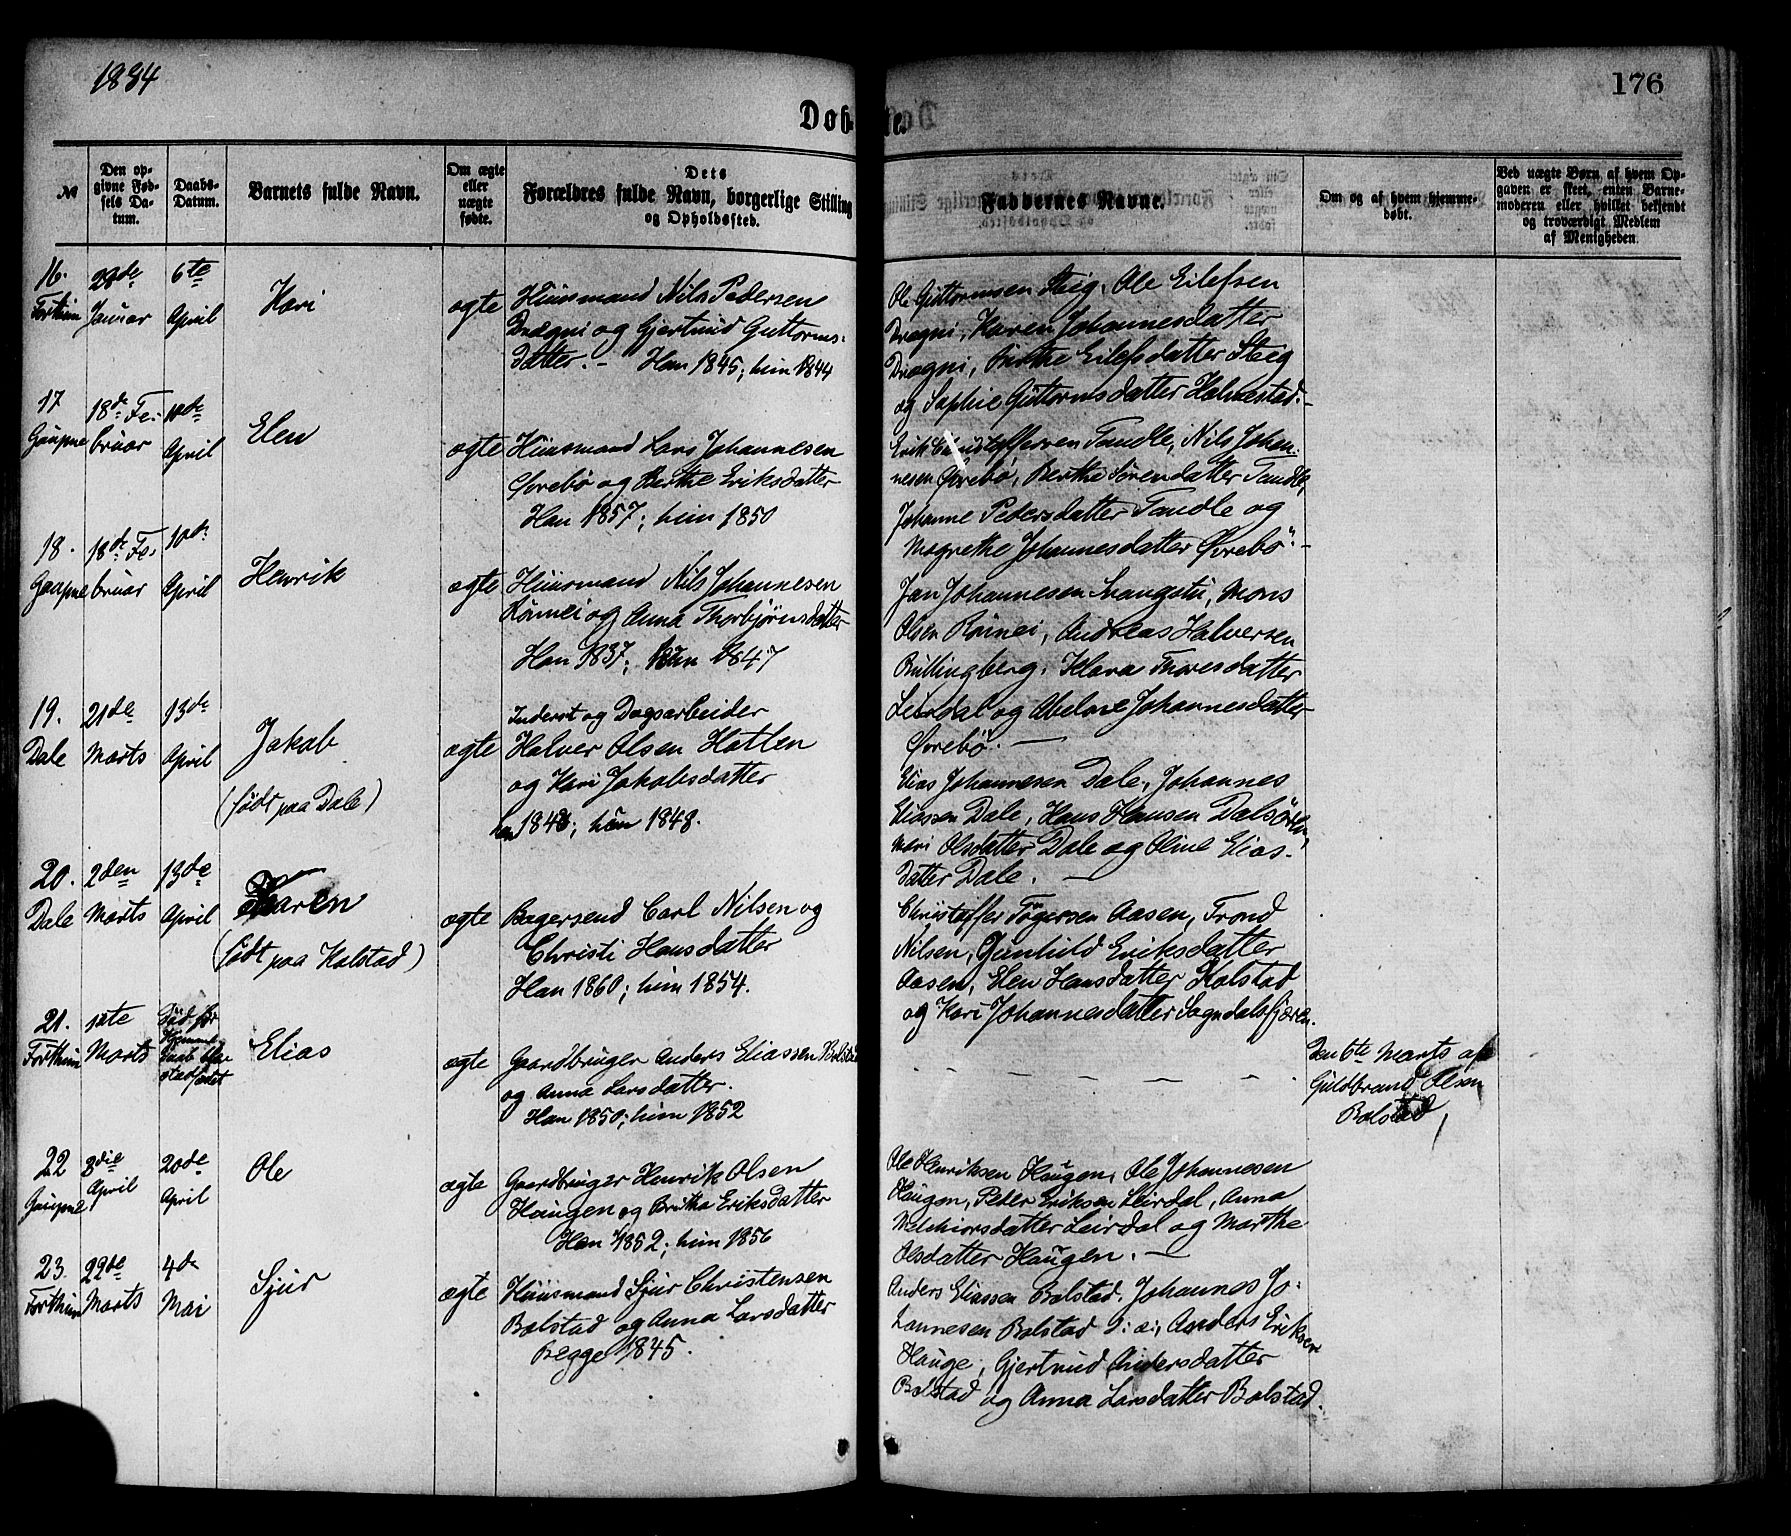 1884
176
Døb-
te.
№
Den op-
givne Fød-
sels Da-
tum.
Daabs-
Datum.
Barnets fulde Navn.
Om ægte
eller
uægte
fødte.
Dets
Forældres fulde Navn, borgerlige Stilling
og Opholdssted.
Faddernes Navne.
Om og af hvem hjemme-
døbt.
Ved uægte Børn, af hvem Op-
gaven er skeet, enten Barne-
moderen eller hvilket bekjendt
og troværdigt Medlem
af Menigheden.
16.
Forthun
28de
Januar
6te
April
Kari
ægte
Huusmand Nils Pedersen
Drægni og Gjertrud Guttorms-
datter. - Han 1845; hun 1844
Ole Guttormsen Steig, Ole Eilefsen
Drægni, Karen Johannesdatter
Drægni, Birthe Eilefsdatter Steig
og Sophie Guttormsdatter Holmestad.-
17
Gaupne
18de Fe-
bruar
10de
April
Elen
ægte
Huusmand Lars Johannesen
Øvrebö og Berthe Eriksdatter
Han 1857; hun 1850
Erik Christoffersen Tandle, Nils Johan-
nesen Øvrebö, Berthe Sörensdatter Tandle,
Johanne Pedersdatter Tandle og
Magrethe Johannesdatter Øvrebö.-
18.
Gaupne
18de Fe-
bruar
10de
April
Henrik
ægte
Huusmand Nils Johannesen
Rönnei og Anna Thorbjörnsdatter
Han 1837; hun 1847
Jan Johannesen Svangstu, Mons
Olsen Rönnei, Andreas Halversen
Bullingberg, Klara Thoresdatter
Leirdal og Abelone Johannesdatter
Øvrebö. —
19.
Dale
21de
Marts
13de
April
Jakob
(födt paa Dale)
ægte
Inderst og Dagsarbeider
Halver Olsen Hatlen
og Kari Jakobsdatter
han 1848; hun 1848.
Elias Johannesen Dale, Johannes
Eliassen Dale, Hans Hansen Dalsören,
Mari Olsdatter Dale og Oline Elias-
datter Dale. —
20.
Dale
2den
Marts
13de
April
Karen
(födt paa Kalstad)
ægte
Bagersvend Carl Nilsen og
Christi Hansdatter
Han 1860; hun 1854.
Christoffer Tögersen Aasen, Trond
Nilsen, Gunhild Eriksdatter
Aasen, Elen Hansdatter Kalstad
og Kari Johannesdatter Sogndalsfjæren.
21.
Forthun
1ste
Marts
Död før
Elias
ægte
Gaardbruger Anders Eliassen Bolstad
og Anna Larsdatter.
Han 1850; hun 1852
Den 6te Marts af
Guldbrand Olsen
Bolstad
22
Gaupne
8die
April
20de
April
Ole
ægte
Gaardbruger Henrik Olsen
Haugen og Britha Eriksdatter
Han 1852; hun 1856
Ole Henriksen Haugen, Ole Johannesen
Haugen, Peder Eriksen Leirdal, Anna
Melchiorsdatter Leirdal og Marthe
Olsdatter Haugen. —
23.
Forthun
22de
Marts
4de
Mai
Sjur
ægte
Huusmand Sjur Christensen
Bolstad og Anna Larsdatter
Begge 1845.
Anders Eliassen Bolstad, Johannes Jo-
hannesen Bolstad, Anders Eriksen
Hauge, Gjertrud Andersdatter
Bolstad og Anna Larsdatter Bolstad.